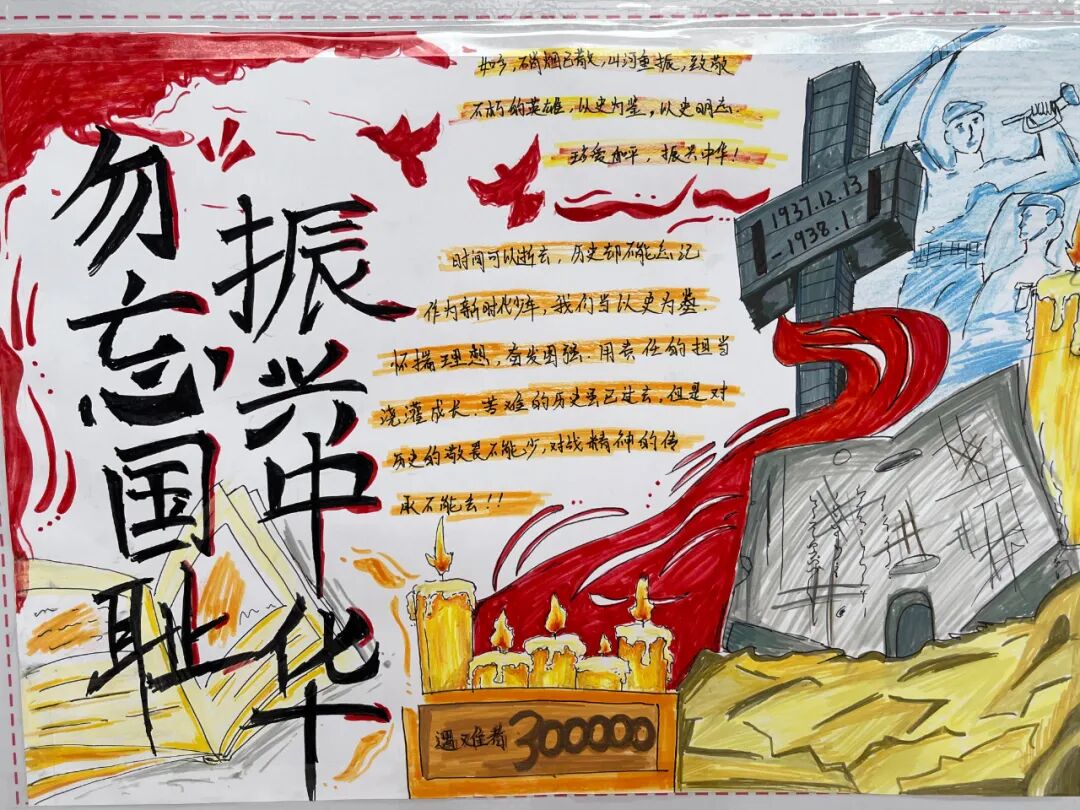 勿忘国耻
振兴中华
如今,硝烟已散,山河重振,致敬
不朽的英雄,以史为鉴,以史明志.
珍爱和平,振兴中华!
1937.12.13
-1938.1
时间可以逝去,历史却不能忘记
作为新时代少年,我们当以史为鉴.
怀揣理想,奋发图强.用责任的担当
浇灌成长.苦难的历史虽已过去,但是对
历史的敬畏不能少,对战精神的传
承不能去!!
遇难者300000